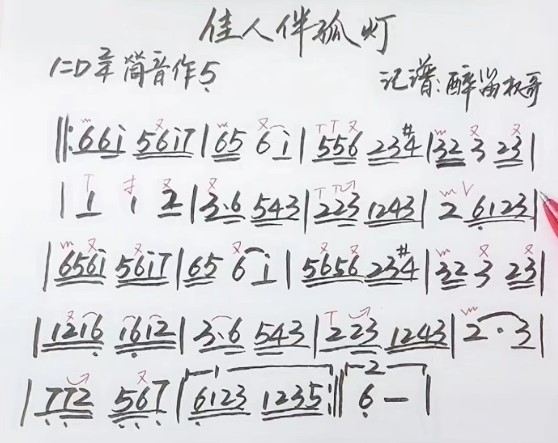 佳人伴孤灯
1=D 2/4 筒音作5 记谱:醉笛权哥
‖:661 5617|65 61|556 23#4|32 3 23|
|1 1 2|3·6 543|223 1243|2 6123|
|6561 5617|65 61|5656 23#4|32 3 23|
|1216 1612|3·6 543|223 1243|2·3|
|772 567|6123 1235:‖6—|